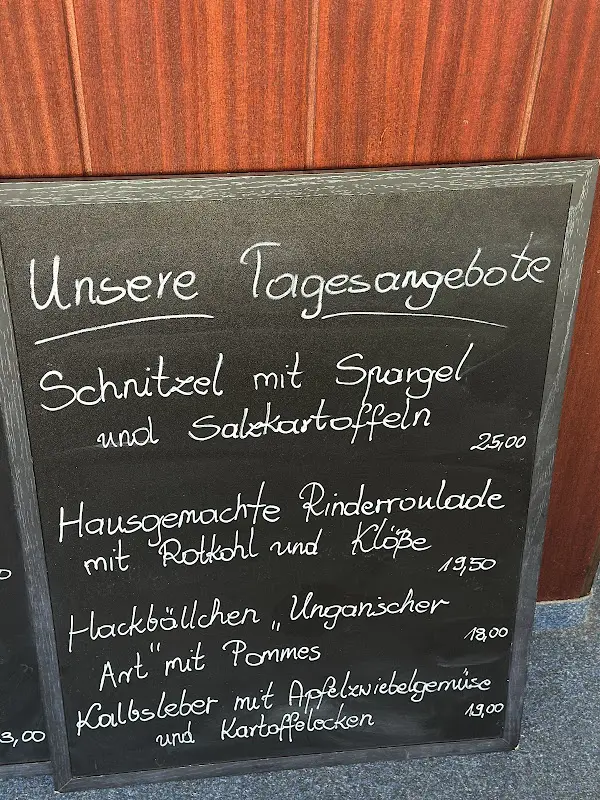 Unsere Tagesangebote
Schnitzel mit Spargel
und Salzkartoffeln
25,00
Hausgemachte Rinderroulade
mit Rotkohl und Klöße
19,50
Hackbällchen „Ungarischer
18,00
Art" mit Pommes
Kalbsleber mit Apfelzwiebelgemüse
19,00
und Kartoffelecken
3,00